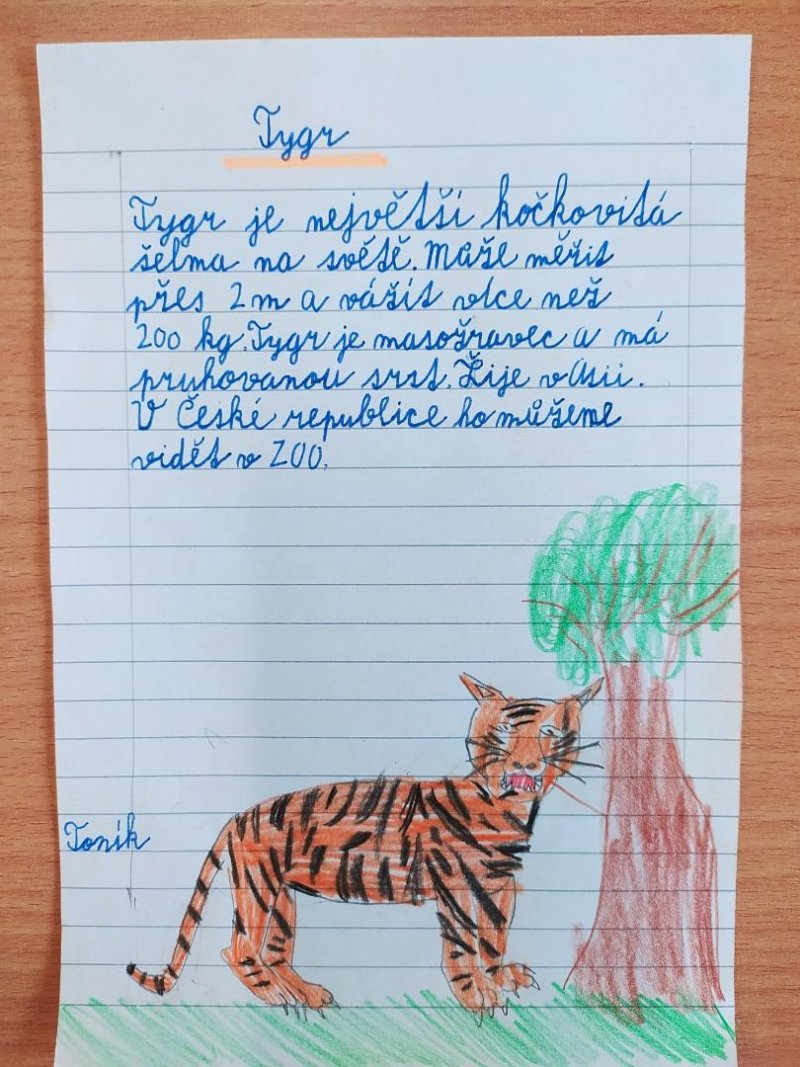 Tygr
Tygr je největší kočkovitá
šelma na světě. Může měřit
přes 2 m a vážit více než
200 kg. Tygr je masožravec a má
pruhovanou srst. Žije v Asii.
V České republice ho můžeme
vidět v ZOO.
Toník